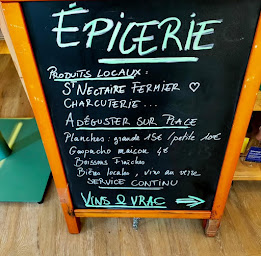 ÉPICERIE
PRODUITS LOCAUX :
ST NECTAIRE FERMIER ♡
CHARCUTERIE ...
A DÉGUSTER SUR PLACE
Planches : grande 15€ / petite 10€
Gaspacho maison 4€
Boissons Fraîches
Bières locales, vins au verre
SERVICE CONTINU
VINS & VRAC →